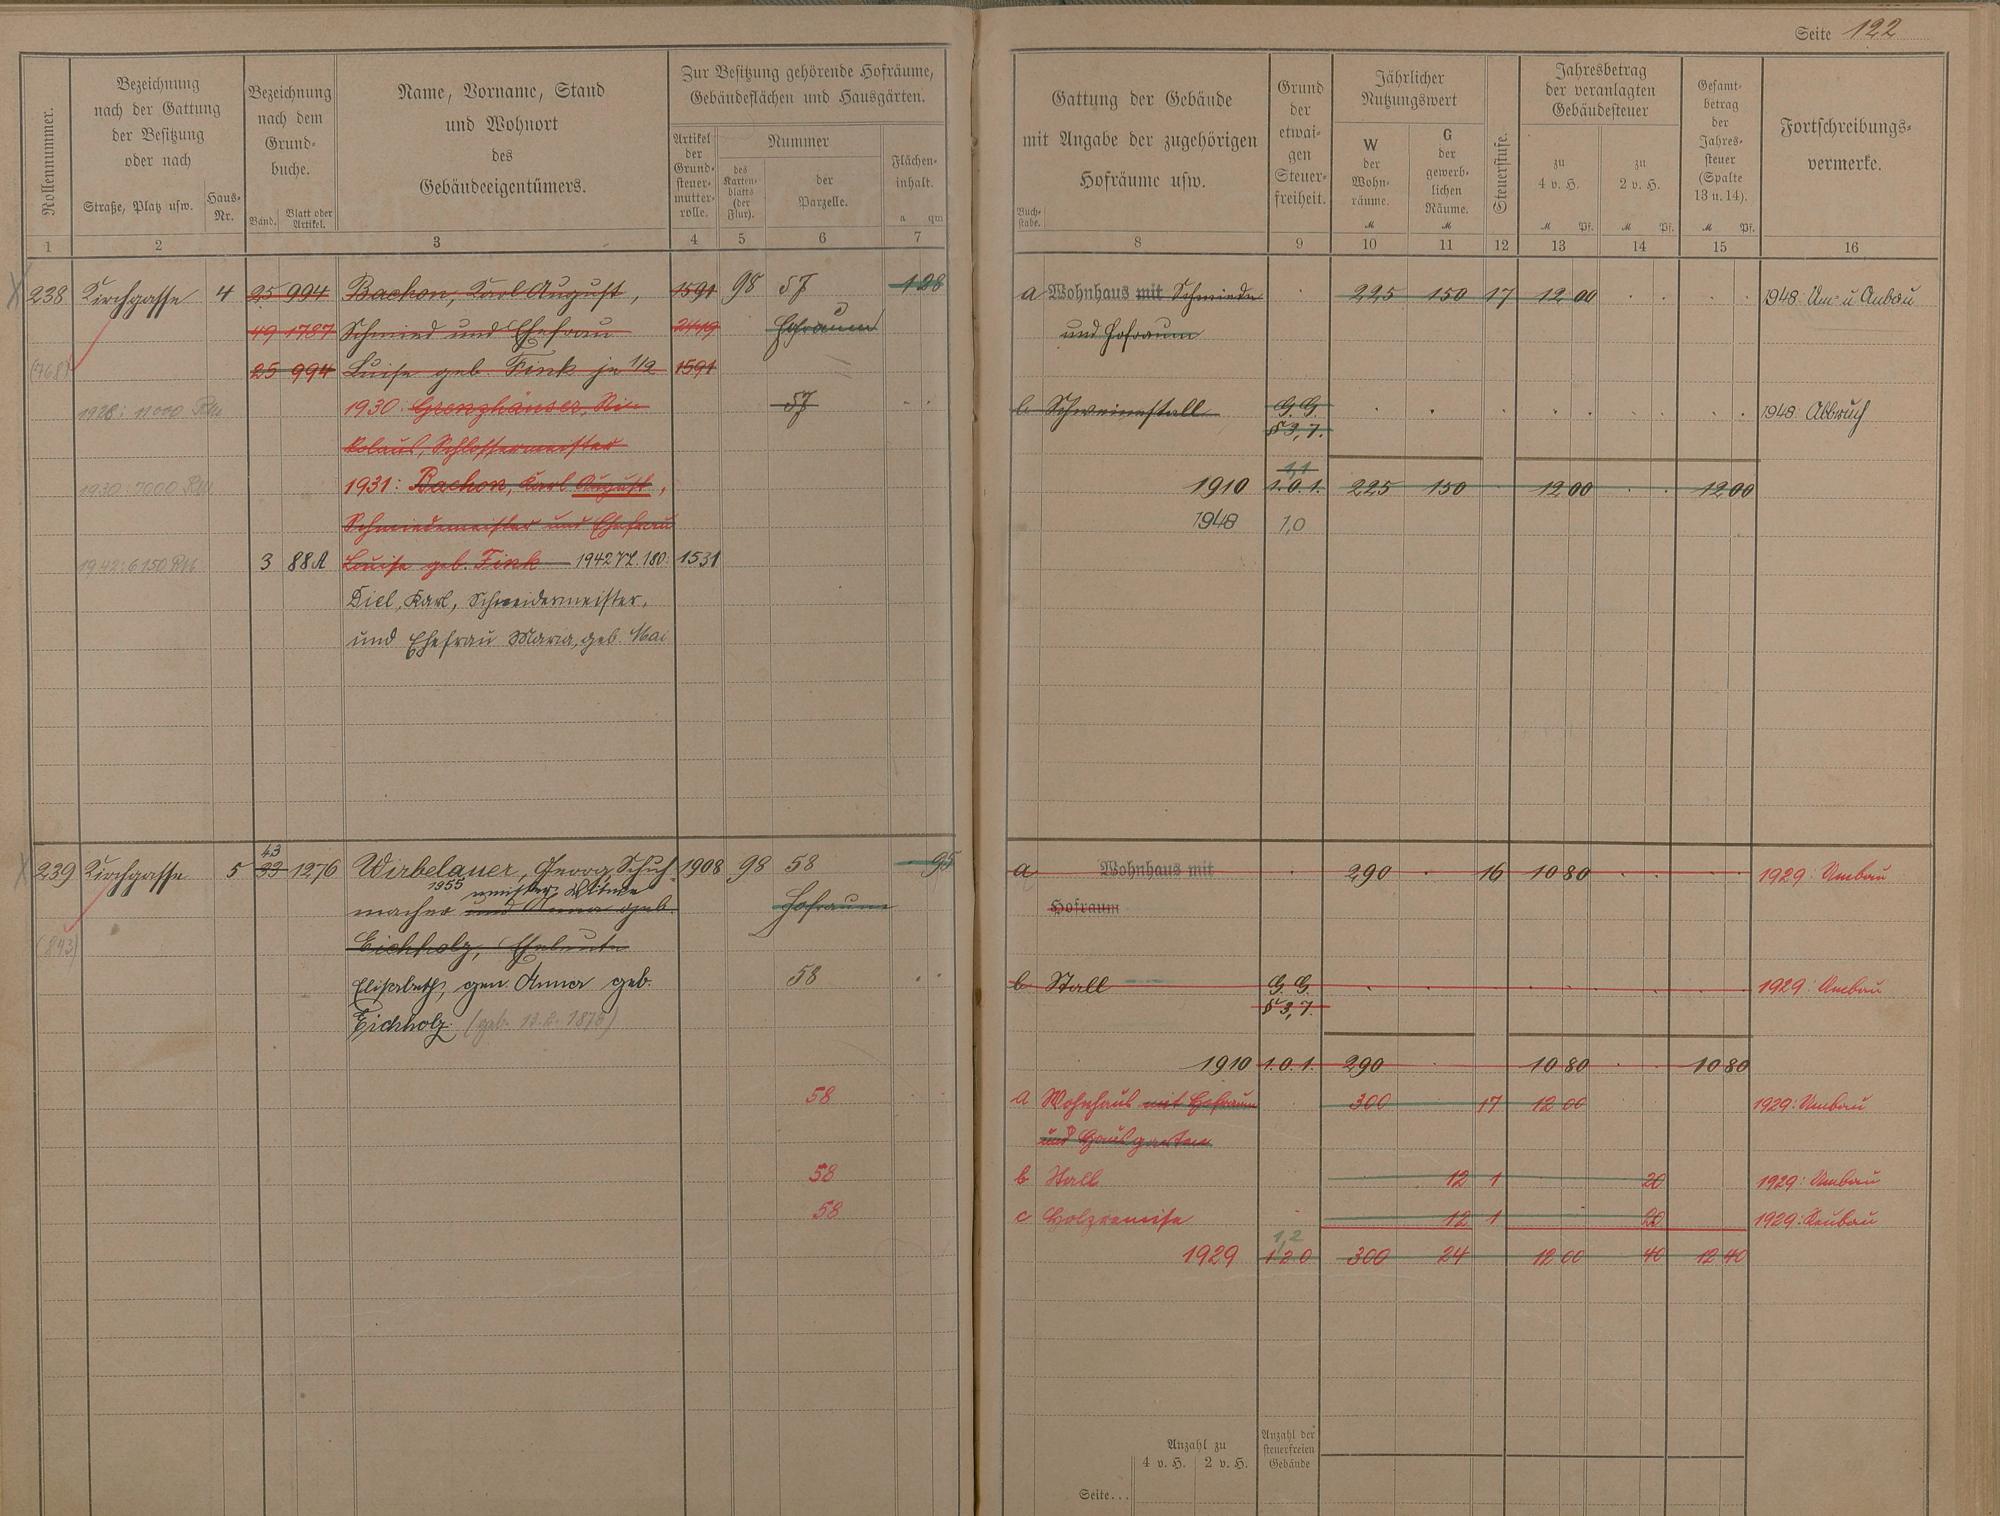 Seite 122
Rollennummer.
Bezeichnung
nach der Gattung
der Besitzung
oder nach
Straße, Platz usw.
Haus-
Nr.
Bezeichnung
nach dem
Grund-
buche.
Band.
Blatt oder
Artikel.
Name, Vorname, Stand
und Wohnort
des
Gebäudeeigentümers.
Zur Besitzung gehörende Hofräume,
Gebäudeflächen und Hausgärten.
Artikel
der
Grund-
steuer-
mutter-
rolle.
Nummer
des
Karten-
blatts
(der
Flur).
der
Parzelle.
Flächen-
inhalt.
a qm
1 2 3 4 5 6 7
Gattung der Gebäude
mit Angabe der zugehörigen
Hofräume usw.
Buch-
stabe.
Grund
der
etwai-
gen
Steuer-
freiheit.
Jährlicher
Nutzungswert
W
der
Wohn-
räume.
M
G
der
gewerb-
lichen
Räume.
M
Steuerstufe.
Jahresbetrag
der veranlagten
Gebäudesteuer
zu
4 v. H.
M Pf.
zu
2 v. H.
M Pf.
Gesamt-
betrag
der
Jahres-
steuer
(Spalte
13 u. 14).
M Pf.
Fortschreibungs-
vermerke.
8 9 10 11 12 13 14 15 16
238 Kirchgasse 4 25 994 Bachon, Karl August, 1591 98 57 1 28
49 1787 Schmied und Ehefrau 2419 Hofraum
(768) 25 994 Luise geb. Fink je 1/2 1591
1928: 11000 RM 1930: Grenzhäuser, Ni- 57
kolaus, Schlossermeister
1930: 7000 RM 1931: Bachon, Karl August,
Schmiedemeister und Ehefrau
1942: 6150 RM 3 88A Louise geb. Fink 1942 VL. 180: 1531
Diel, Karl, Schneidermeister,
und Ehefrau Maria, geb. Mai
a Wohnhaus mit Schmiede 225 150 17 12 00 1948: Um- u. Anbau
und Hofraum
b Schweinestall G. G. 1948: Abbruch
§ 3,7.
1,1
1910 1.0.1. 225 150 12 00 12 00
1948 1,0
43
239 Kirchgasse 5 33 1276 Wirbelauer, Georg, Schuh- 1908 98 58 95
1955 Witwe
macher und Anna geb. Hofraum
(843) Eichholz, Eheleute
Elisabeth, gen. Anna geb. 58
Eichholz (geb. 13.2.1878)
58
58
58
a Wohnhaus mit 290 16 10 80 1929: Umbau
Hofraum
b Stall G. G. 1929: Umbau
§ 3,7.
1910 1.0.1. 290 10 80 10 80
a Wohnhaus mit Hofraum 300 17 12 00 1929: Umbau
und Hausgarten
b Stall 12 1 20 1929: Umbau
c Holzremise 12 1 20 1929: Neubau
1,2
1929 1 2 0 300 24 12 00 40 12 40
Anzahl zu
4 v. H. 2 v. H.
Anzahl der
steuerfreien
Gebäude
Seite...